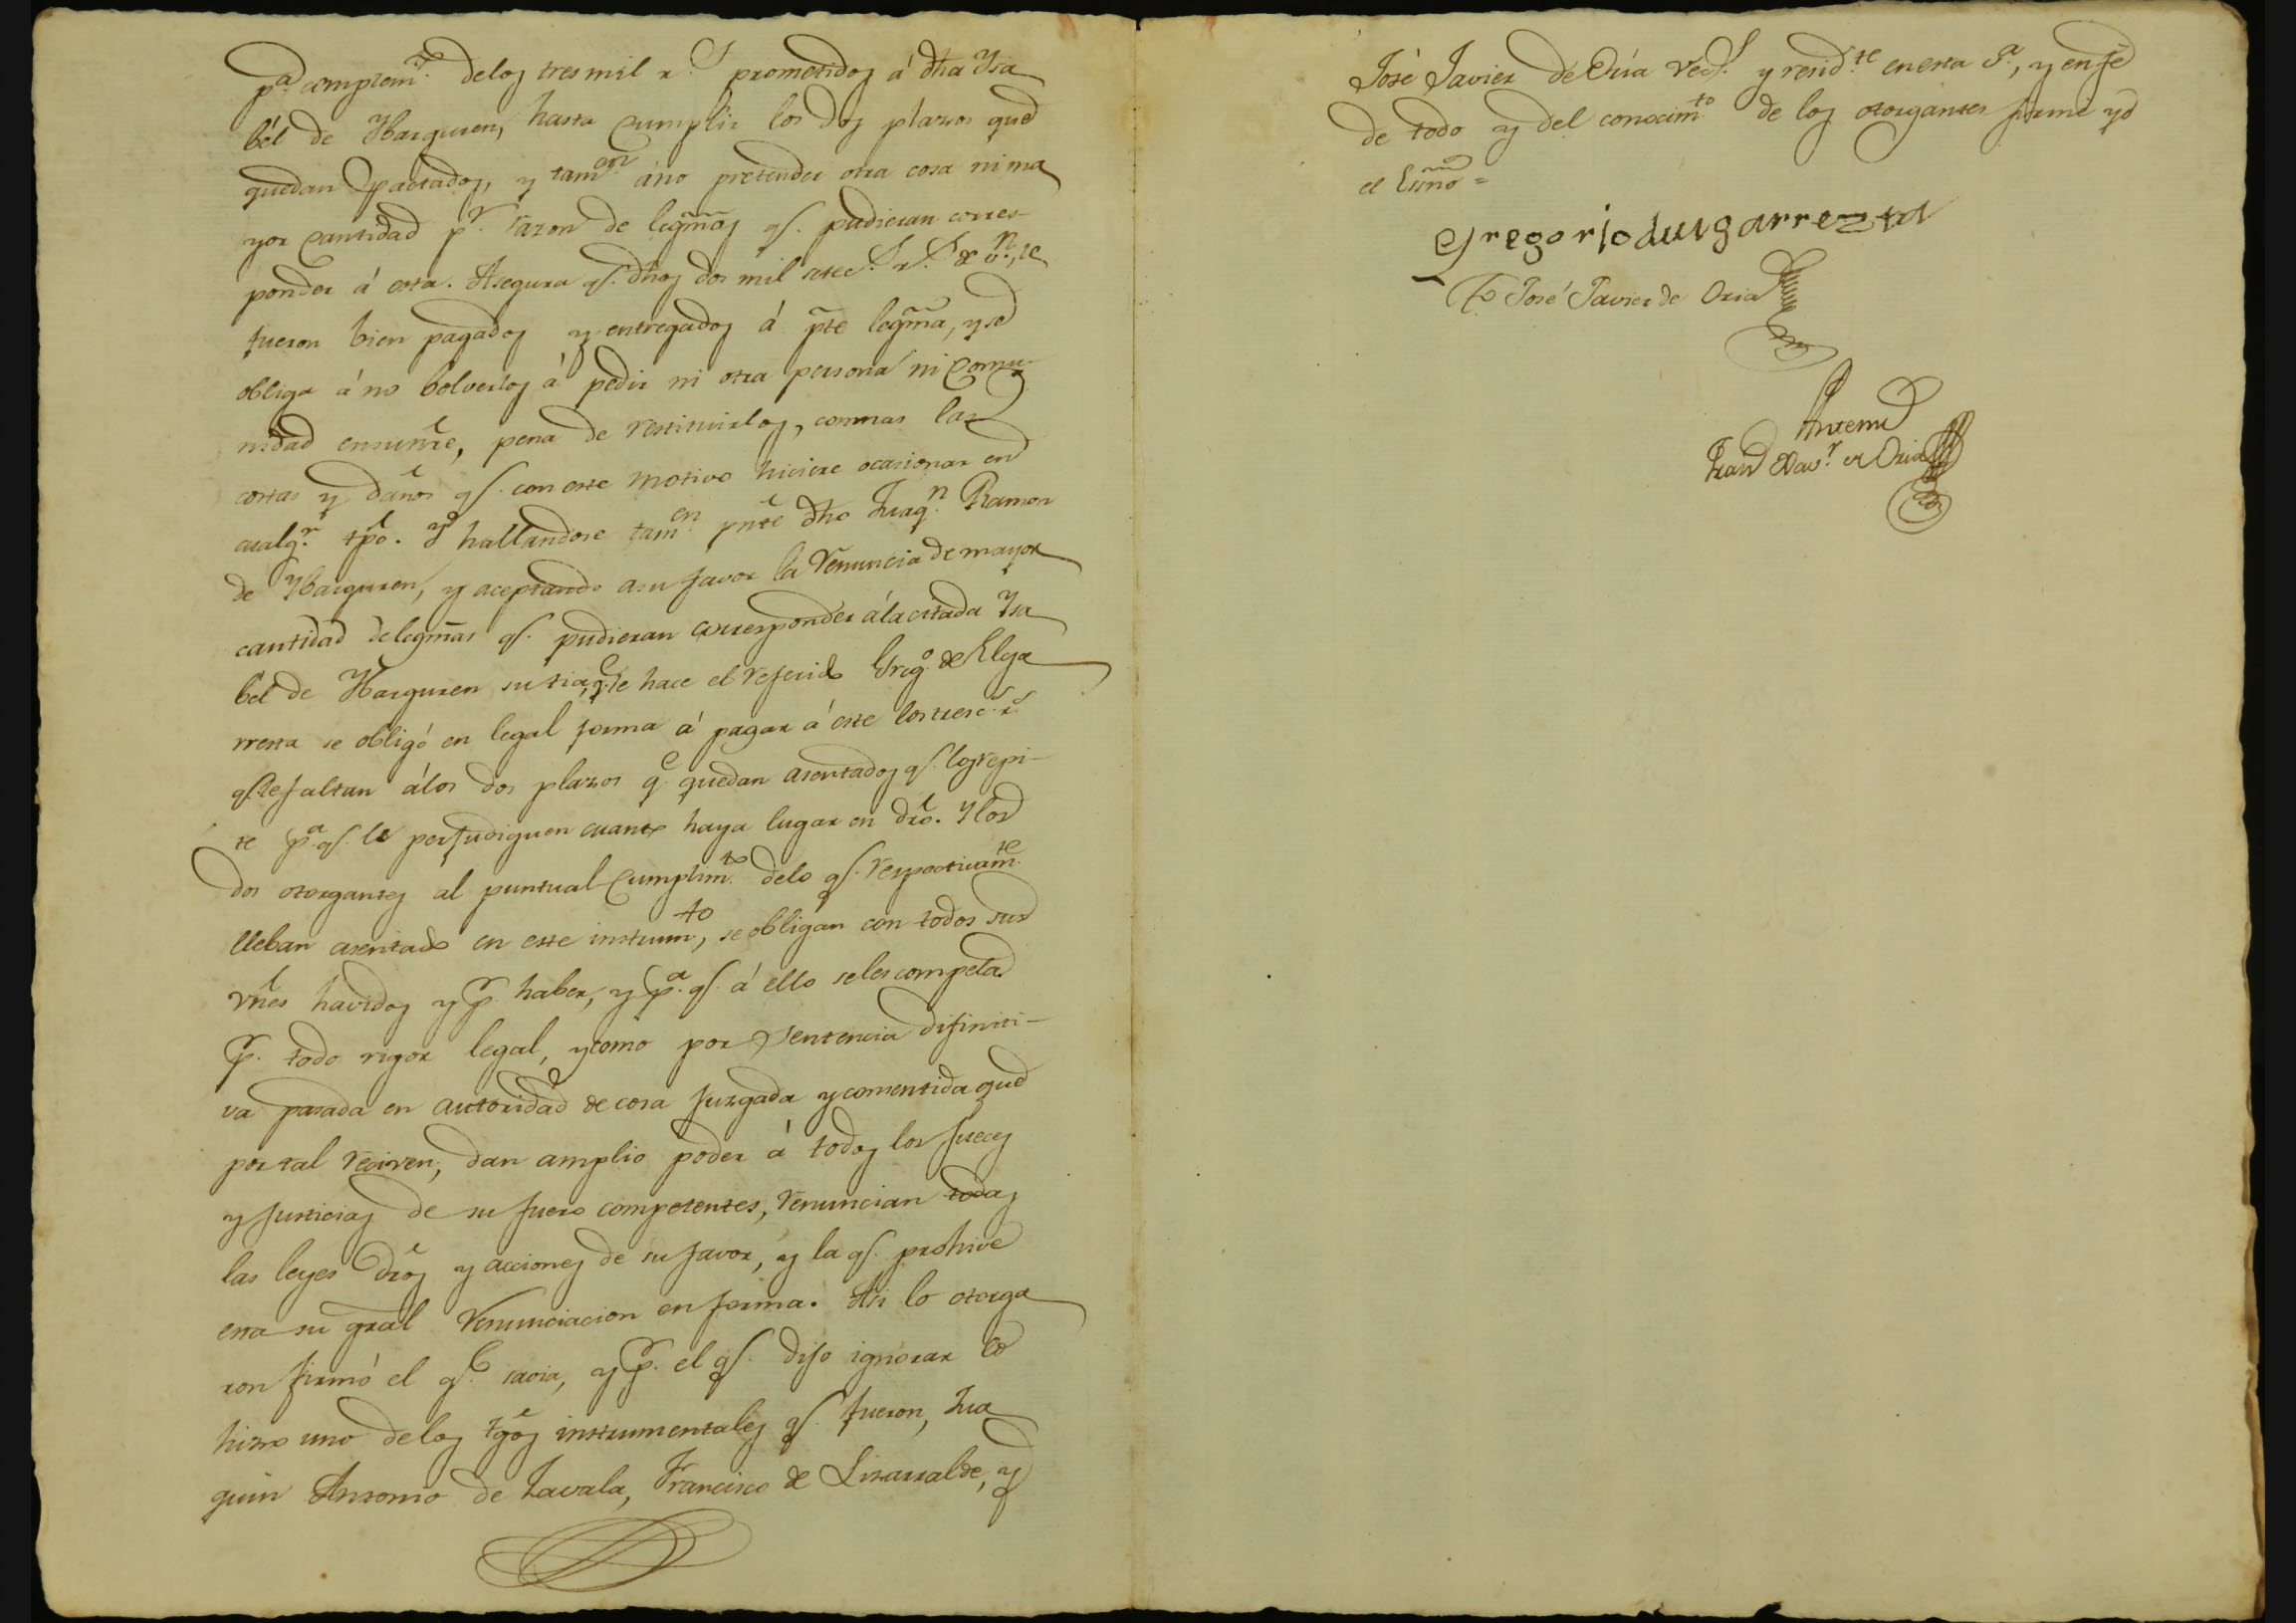 p.ª complem.to delos tres mil r.s prometidos á dha Ysa
bél de Ybarguren, hasta cumplir los dos plazos que
quedan pactados, y tam.en áno pretender otra cosa ni ma
yor cantidad p.r razon de legmas q.e pudieran corres-
ponder á esta. Asegura q.e dhos dos mil setec.s r.s de v.n, le
fueron bien pagados y entregados á pte legma, y se
obliga á no bolverlos á pedir ni otra persona ni comu-
nidad ensunre, pena de restituirlos, conmas las
costas y daños q.e con este motivo hiciere ocasionar en
cualq.r tpo. Y hallandose tam.en pnte dho Juaq.n Ramon
de Ybarguren, y aceptando asu favor la renuncia de mayor
cantidad delegmas q.e pudieran corresponder álacitada Ysa
bél de Ybarguren su tia, q.e le hace el referido Greg.o de Elga
rresta se obligó en legal forma á pagar á este los tresc.s r.s
q.e le faltan álos dos plazos q.e quedan asentados q.e los repi-
te p.ª q.e le perjudiquen cuanto haya lugar en dro. Y los
dos otorgantes al puntual cumplim.to delo q.e respectivam.te
lleban asentado en este instrum.to, se obligan con todos sus
vnes havidos y p.r haber, y p.ª q.e á ello seles competa
p.r todo rigor legal, ycomo por sentencia difiniti-
va pasada en autoridad de cosa juzgada y comentida que
por tal reciven, dan amplio poder á todos los jueces
y justicias de su fuero competentes, renuncian todas
las leyes dros y acciones de su favor, y la q.e prohive
esta su gral renunciacion en forma. Asi lo otorga
ron firmó el q.e savia, y p.r el q.e dijo ignorar lo
hizo uno delos tgos instrumentales q.e fueron, Jua
quin Antonio de Zavala, Francisco de Lizarralde, y
José Javier de Oria vec.s y resid.te en esta v.ª, y en fé
de todo y del conocim.to de los otorgantes firmé yo
el Essno =
Gregorio de elgarresta
To José Javier de Oria
Antemi
Fran.co Xav.r de Oria